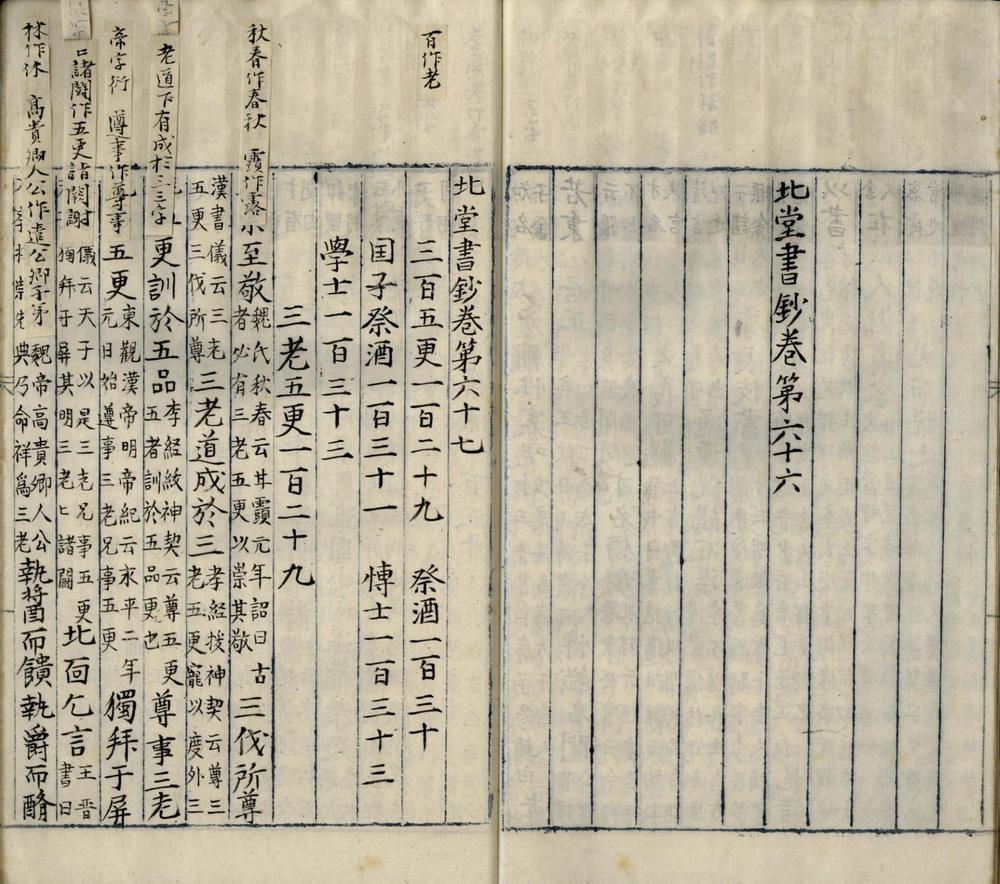 北堂書鈔卷第六十六
北堂書鈔卷第六十七
三百五更一百二十九 祭酒一百三十
国子祭酒一百三十一 博士一百三十三
學士一百三十三
三老五更一百二十九
小至敬魏氏秋春云甘靈元年詔曰古者必有三老五更以崇其敬三伐所尊
漢書儀云三老五更三伐所尊三老道成於三孝經援神契云尊三老五更寵以度外三
更訓於五品李經紋神契云尊五更五者訓於五品更也尊事三老
五更東觀漢帝明帝紀云永平二年元日始遵事三老兄事五更獨拜于屏
儀云天子以是三老兄事五更獨拜于屏其明三老匕諸闕北面乞言王晋書曰
崇先典乃命祥為三老執醬而饋執爵而酳
魏帝高貴卿人公
百作老
秋春作春秋 靈作露
老道下有成於三三字
帝字衍 遵事作尊事
匕諸闕作五更詣闕謝
林作休 高貴卿人公作遺公卿子弟